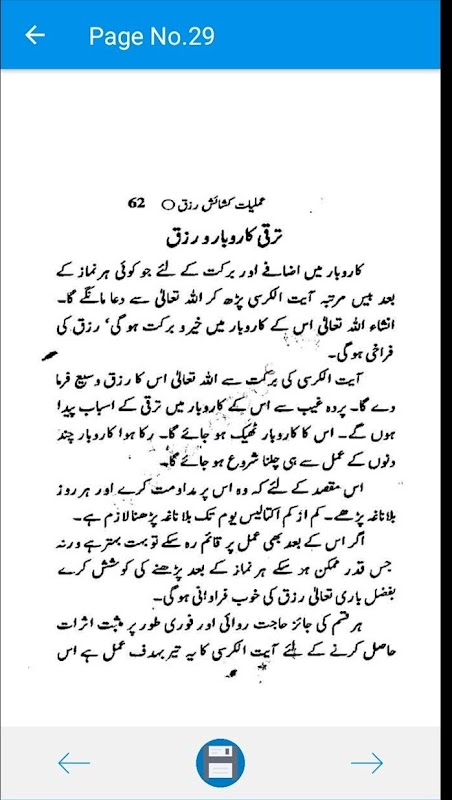 Page No.29
عملیات کشائش رزق ○ 62
ترقی کاروبار و رزق
کاروبار میں اضافے اور برکت کے لئے جو کوئی ہر نماز کے
بعد بیس مرتبہ آیت الکرسی پڑھ کر اللہ تعالیٰ سے دعا مانگے گا۔
انشاء اللہ تعالیٰ اس کے کاروبار میں خیر و برکت ہو گی‘ رزق کی
فراخی ہو گی۔
آیت الکرسی کی برکت سے اللہ تعالیٰ اس کا رزق وسیع فرما
دے گا۔ پردہ غیب سے اس کے کاروبار میں ترقی کے اسباب پیدا
ہوں گے۔ اس کا کاروبار ٹھیک ہو جائے گا۔ رکا ہوا کاروبار چند
دنوں کے عمل سے ہی چلنا شروع ہو جائے گا۔
اس مقصد کے لئے کہ وہ اس پر مداومت کرے اور ہر روز
بلاناغہ پڑھے۔ کم از کم اکتالیس یوم تک بلاناغہ پڑھنا لازم ہے۔
اگر اس کے بعد بھی عمل پر قائم رہ سکے تو بہت بہتر ہے ورنہ
جس قدر ممکن ہو سکے ہر نماز کے بعد پڑھنے کی کوشش کرے
بفضل باری تعالیٰ رزق کی خوب فراوانی ہو گی۔
ہر قسم کی جائز حاجت روائی اور فوری طور پر مثبت اثرات
حاصل کرنے کے لئے آیت الکرسی کا یہ تیر بہدف عمل ہے اس